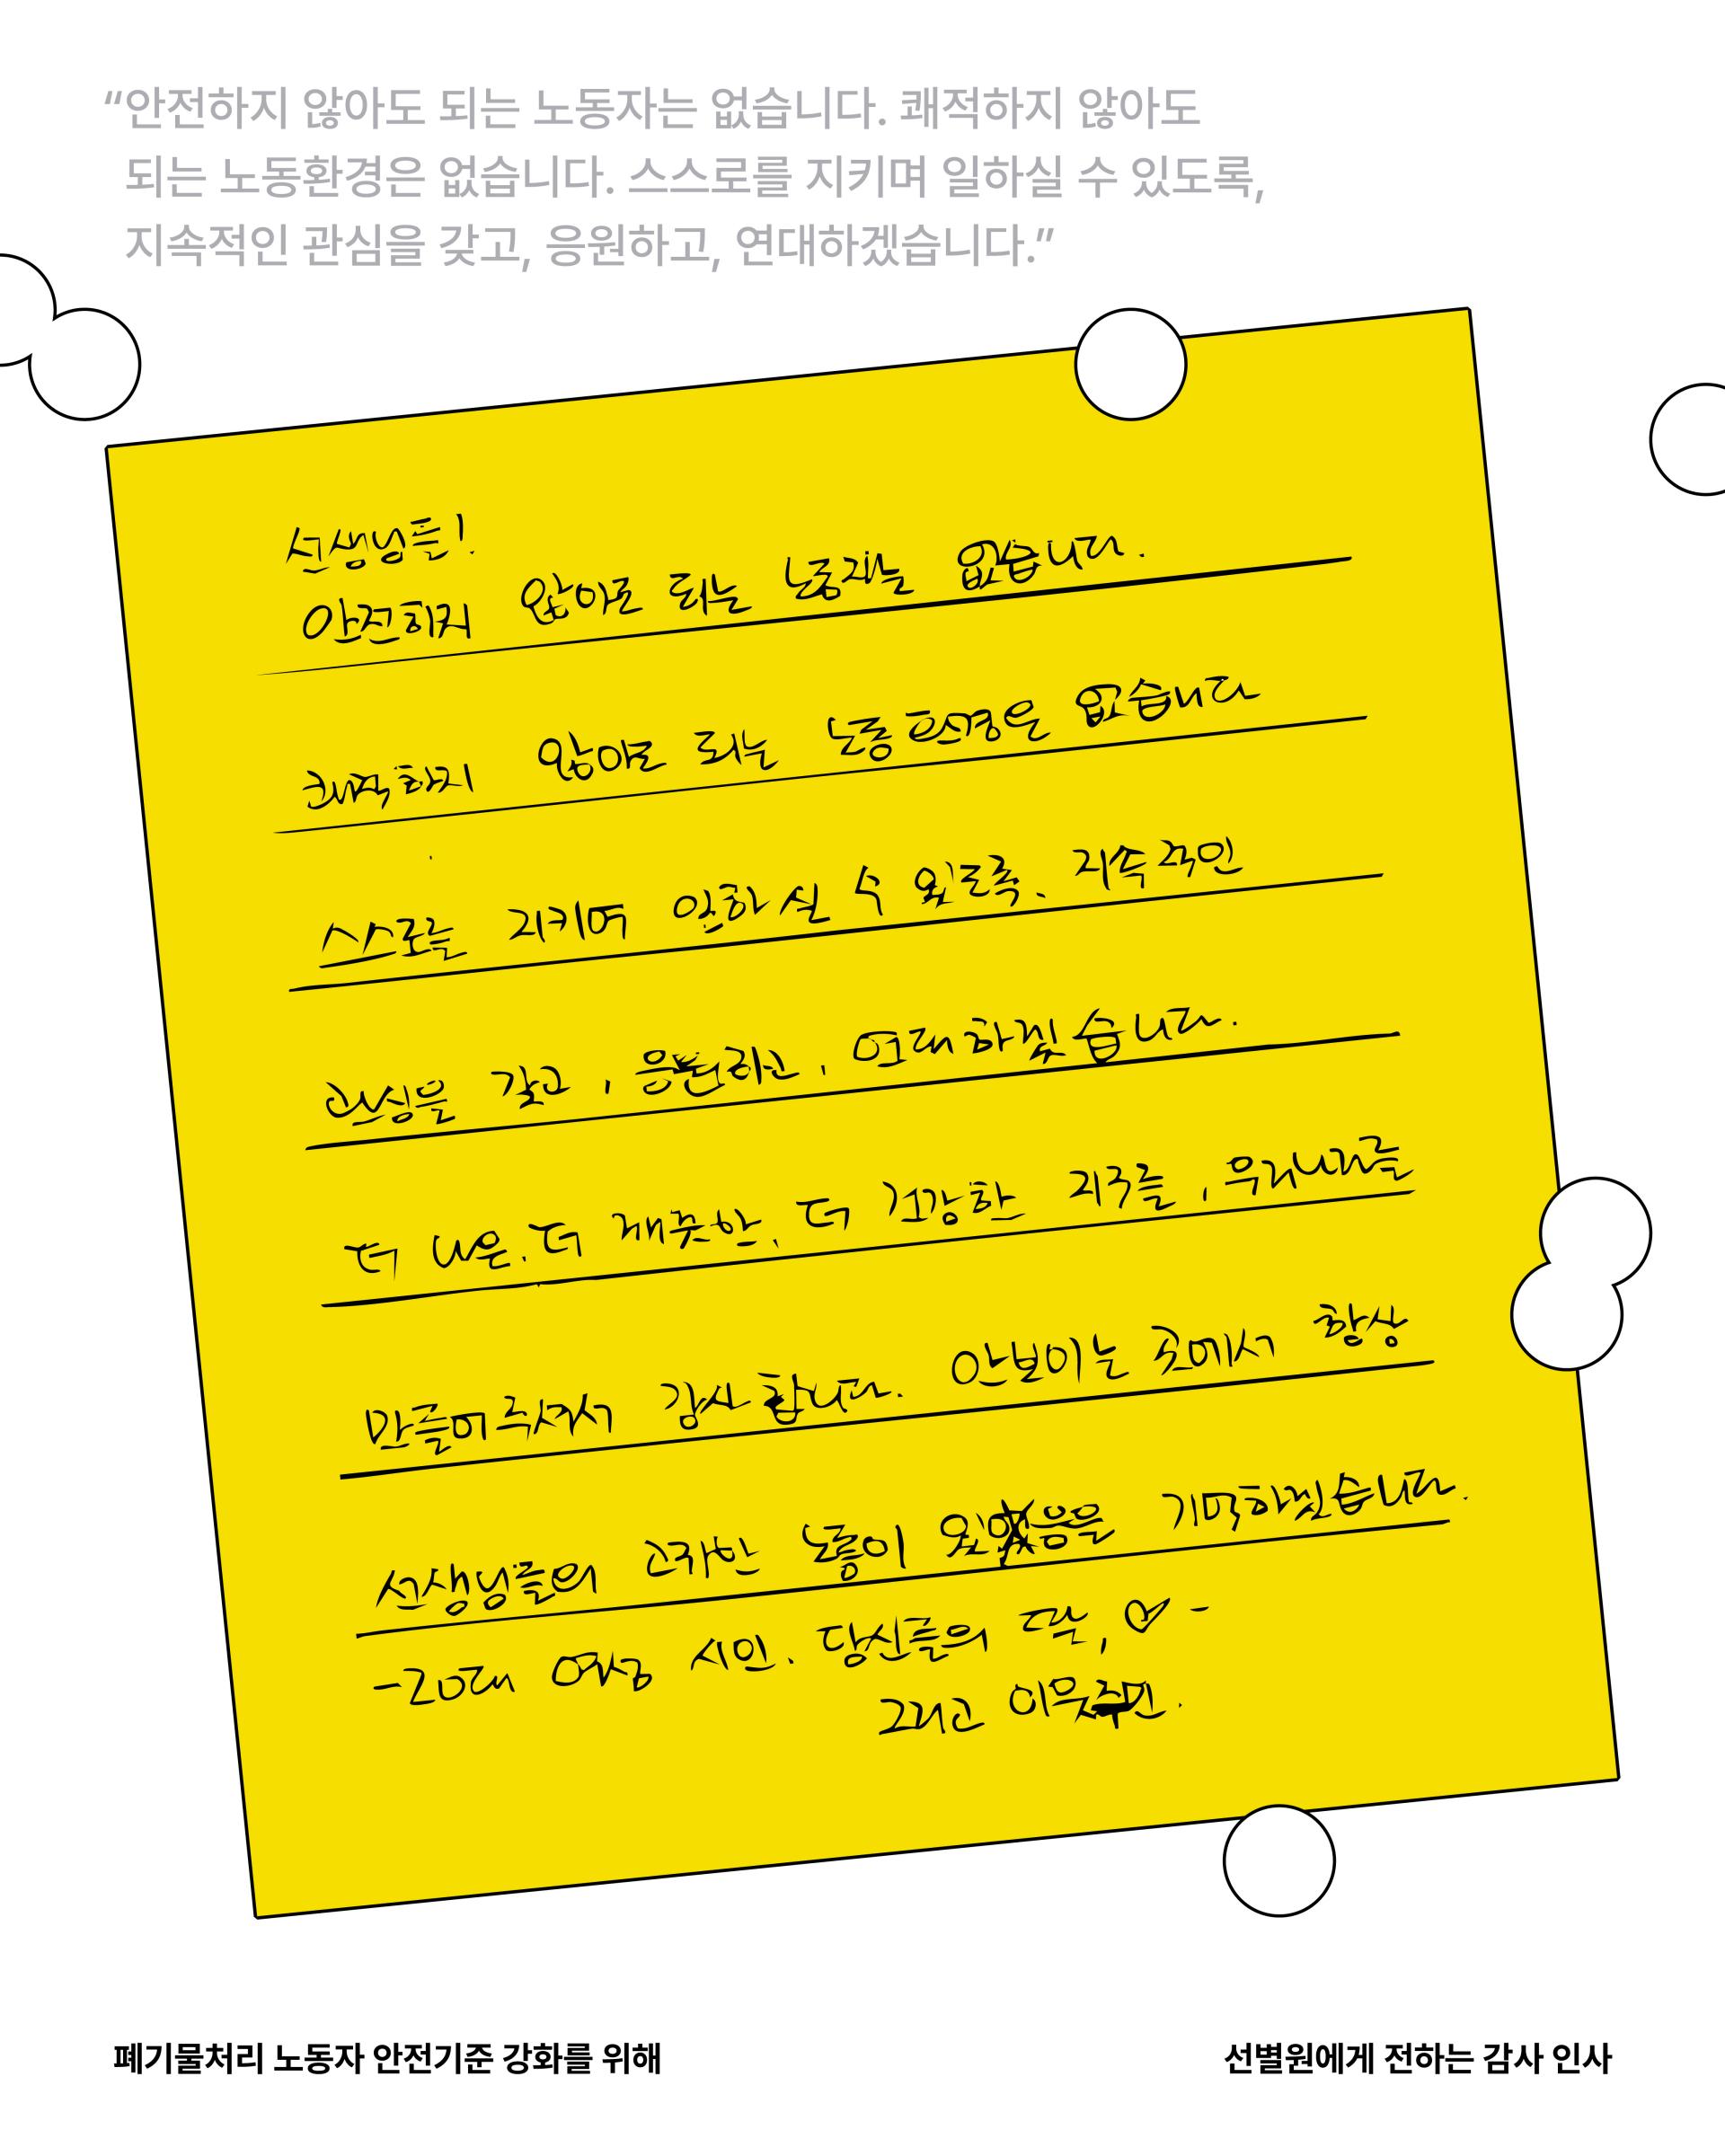 “안전하지 않아도 되는 노동자는 없습니다. 쾌적하지 않아도
되는 노동환경은 없습니다. 스스로를 지키며 일하실 수 있도록,
지속적인 관심을 갖고, 응원하고, 연대하겠습니다.”
선생님들!
안전하지 않아도 되는 노동자는 없습니다.
쾌적하지 않아도 되는 노동환경은 없습니다
스스로를 지키며 일하실 수 있도록, 지속적인
관심을 갖고, 응원하고, 연대하겠습니다.
더 나은, 더 깨끗한, 더 건강한 지구를, 우리나라를
만들어주셔서 감사합니다. 안보이는 곳에서 항상
선생님들의 귀하는 노동이 있음을 기억하겠습니다.
- 20대 여성 시민. 당신들의 딸, ♡ -
그리고 이웃
폐기물처리 노동자 안전기준 강화를 위해
선별원에게 전하는 감사 인사